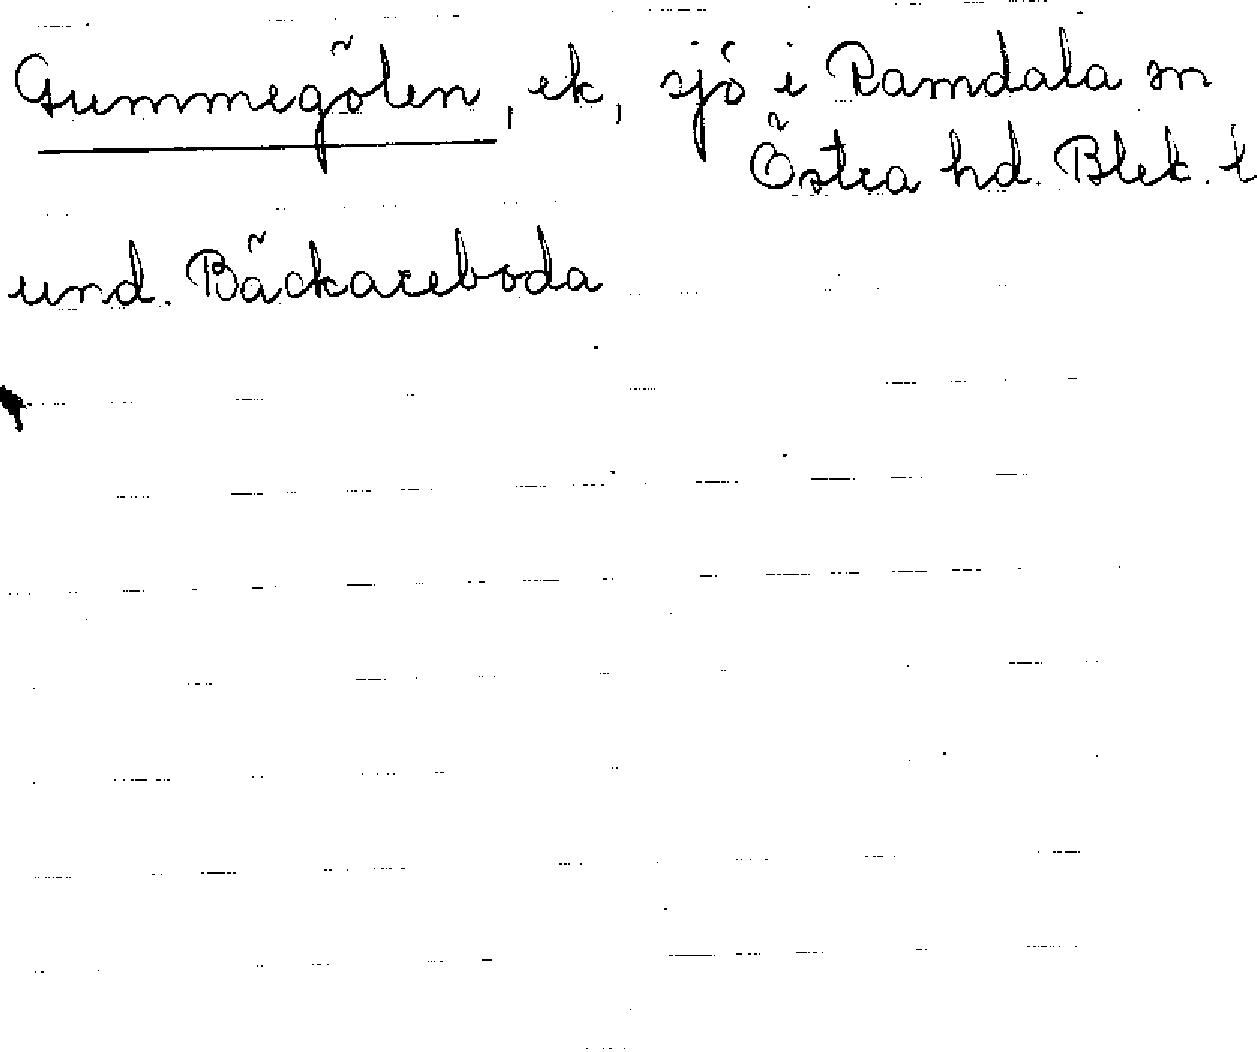 Gummegölen, ek, sjö i Ramdala sn
Östra hd. Blek. l
und. Bäckareboda